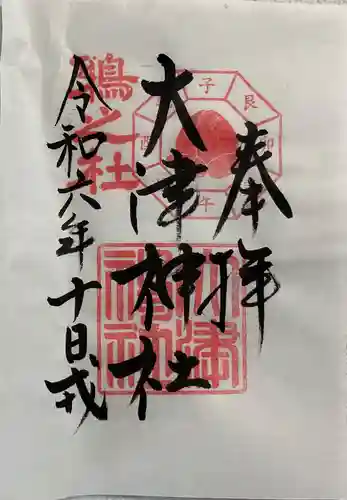 奉拝
大津神社
令和六年十日戎
子
艮
卯
午
酉
鷭之社
大津神社